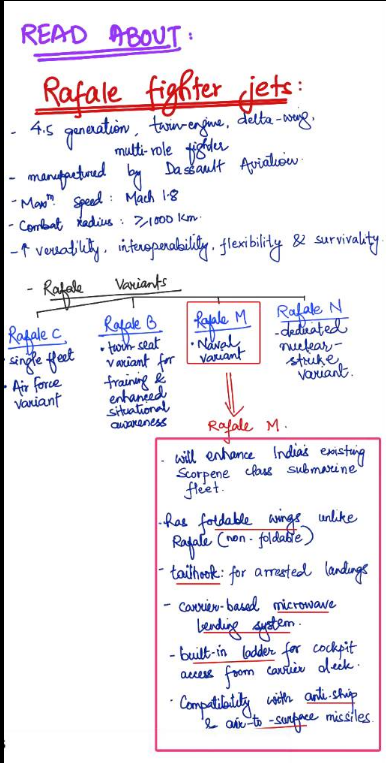 READ ABOUT:
Rafale fighter jets:
- 4.5 generation, twin-engine, delta-wing,
multi-role fighter
- manufactured by Dassault Aviation
- Maxm speed: Mach 1.8
- Combat radius: ≥1000 km.
- ↑ versatility, interoperability, flexibility & survivality.
- Rafale Variants
Rafale C
• single fleet
• Air Force
variant
Rafale B
• twin seat
variant for
training &
enhanced
situational
awareness
Rafale M
• Naval
variant
Rafale N
- dedicated
nuclear-
strike
variant.
Rafale M.
- will enhance India's existing
Scorpene class submarine
fleet.
- has foldable wings unlike
Rafale (non-foldable)
- tailhook: for arrested landings
- carrier-based microwave
lending system.
- built-in ladder for cockpit
access from carrier deck.
• Compatibility with anti-ship
& air-to-surface missiles.